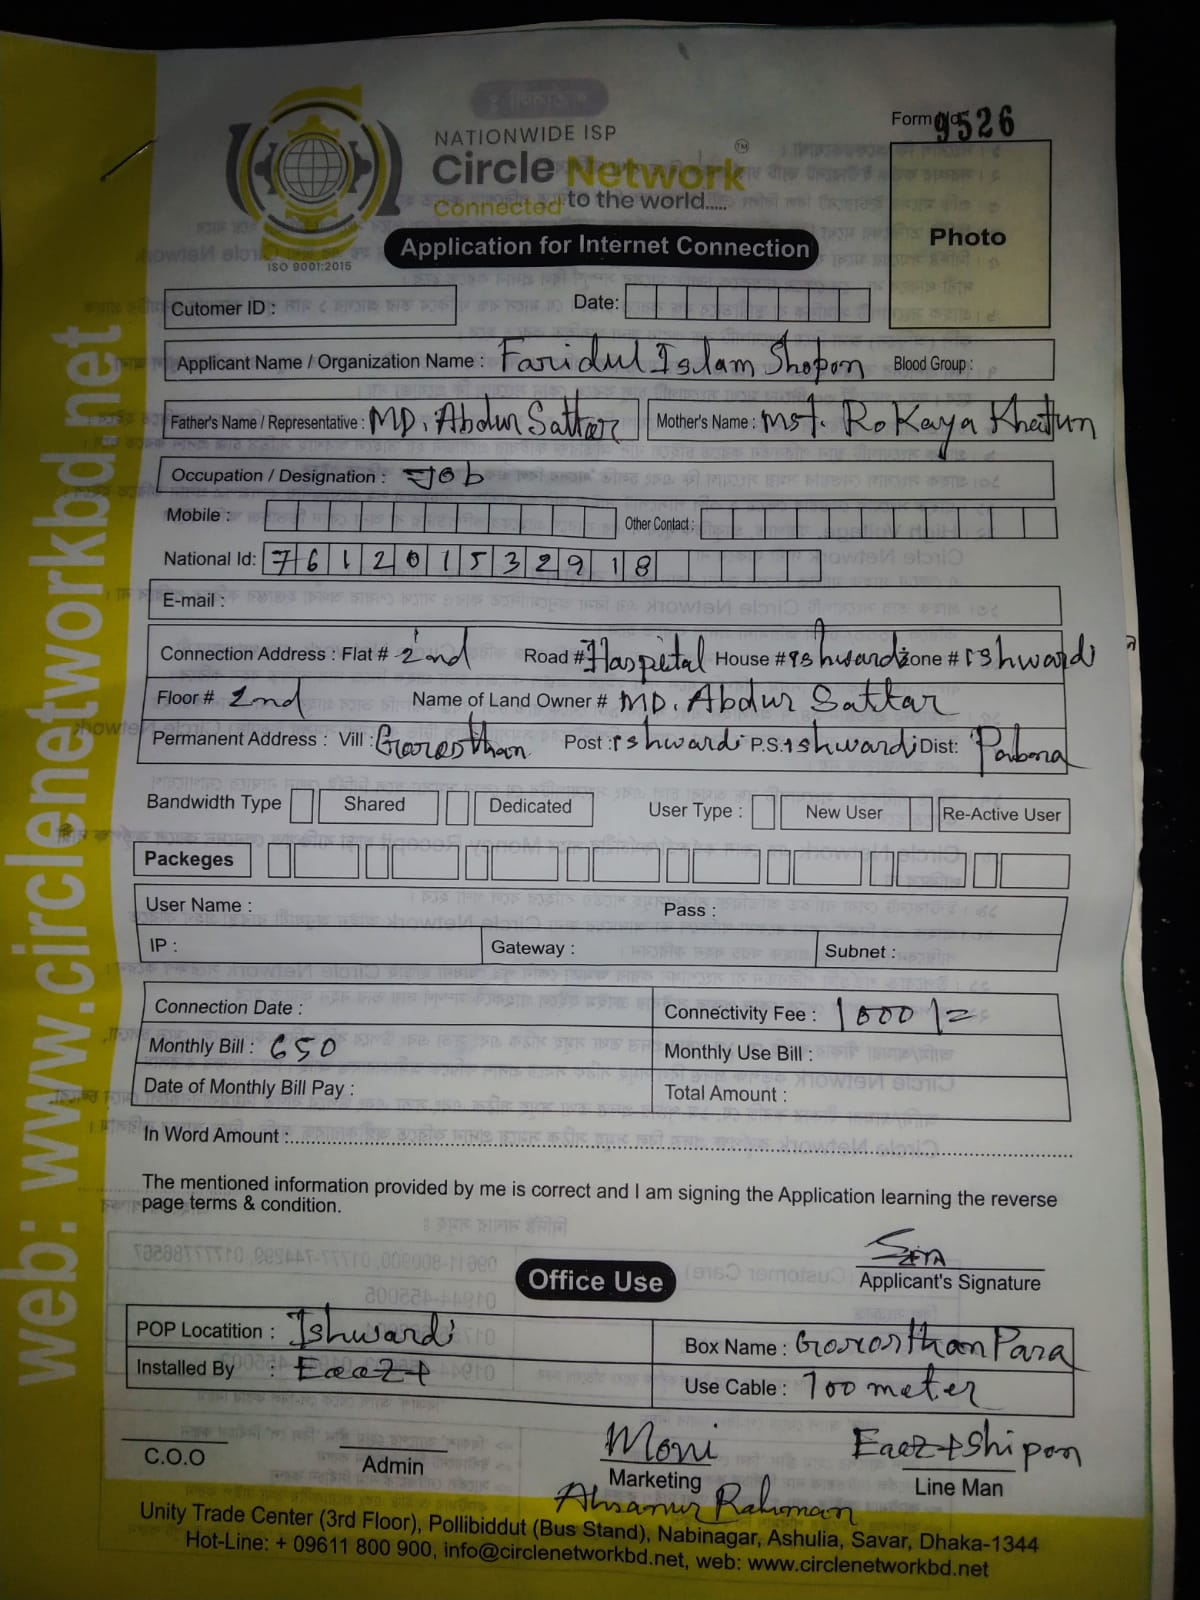 Form No. 9526
NATIONWIDE ISP
Circle Network TM
Connected to the world.....
ISO 9001:2015
Application for Internet Connection
Photo
Cutomer ID :
Date:
Applicant Name / Organization Name : Faridul Islam Shopon Blood Group :
Father's Name / Representative : MD. Abdur Sattar Mother's Name : Mst. Rokaya Khatun
Occupation / Designation : Job
Mobile : Other Contact :
National Id: 761201532918
E-mail :
Connection Address : Flat # 2nd Road # Haspital House # ishwardi Zone # ishwardi
Floor # 2nd Name of Land Owner # MD. Abdur Sattar
Permanent Address : Vill : Gorosthan Post : ishwardi P.S. ishwardi Dist: Pabna
Bandwidth Type Shared Dedicated User Type : New User Re-Active User
Packeges
User Name : Pass :
IP : Gateway : Subnet :
Connection Date : Connectivity Fee : 1000/=
Monthly Bill : 650 Monthly Use Bill :
Date of Monthly Bill Pay : Total Amount :
In Word Amount :
The mentioned information provided by me is correct and I am signing the Application learning the reverse
page terms & condition.
Applicant's Signature
Office Use
POP Locatition : Ishwardi Box Name : GorosthanPara
Installed By : Use Cable : 700 meter
Moni Shipon
C.O.O Admin Marketing Line Man
Ahsanur Rahman
Unity Trade Center (3rd Floor), Pollibiddut (Bus Stand), Nabinagar, Ashulia, Savar, Dhaka-1344
Hot-Line: + 09611 800 900, info@circlenetworkbd.net, web: www.circlenetworkbd.net
web: www.circlenetworkbd.net